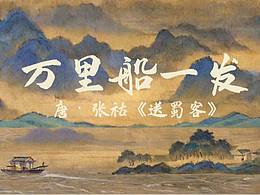 万里船一发
唐·张祜《送蜀客》